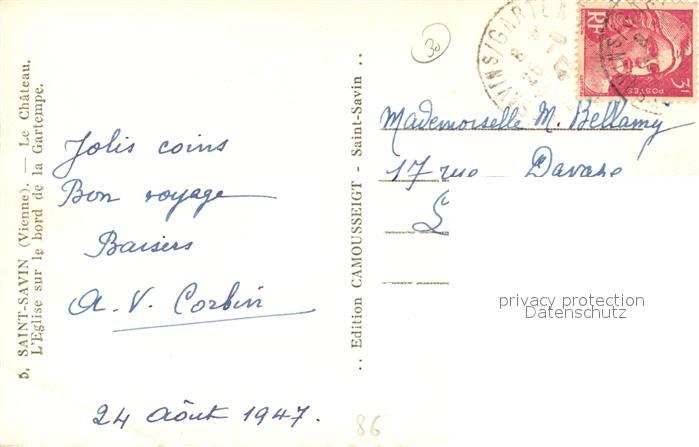 5. SAINT-SAVIN (Vienne). — Le Château.
L'Eglise sur le bord de la Gartempe.
Jolis coins
Bon voyage
Baisers
A. V. Corbin
24 Août 1947.
.. Edition CAMOUSSEIGT - Saint-Savin ..
30
RF
POSTES
3F
Mademoiselle M. Bellamy
17 rue
privacy protection
Datenschutz
86